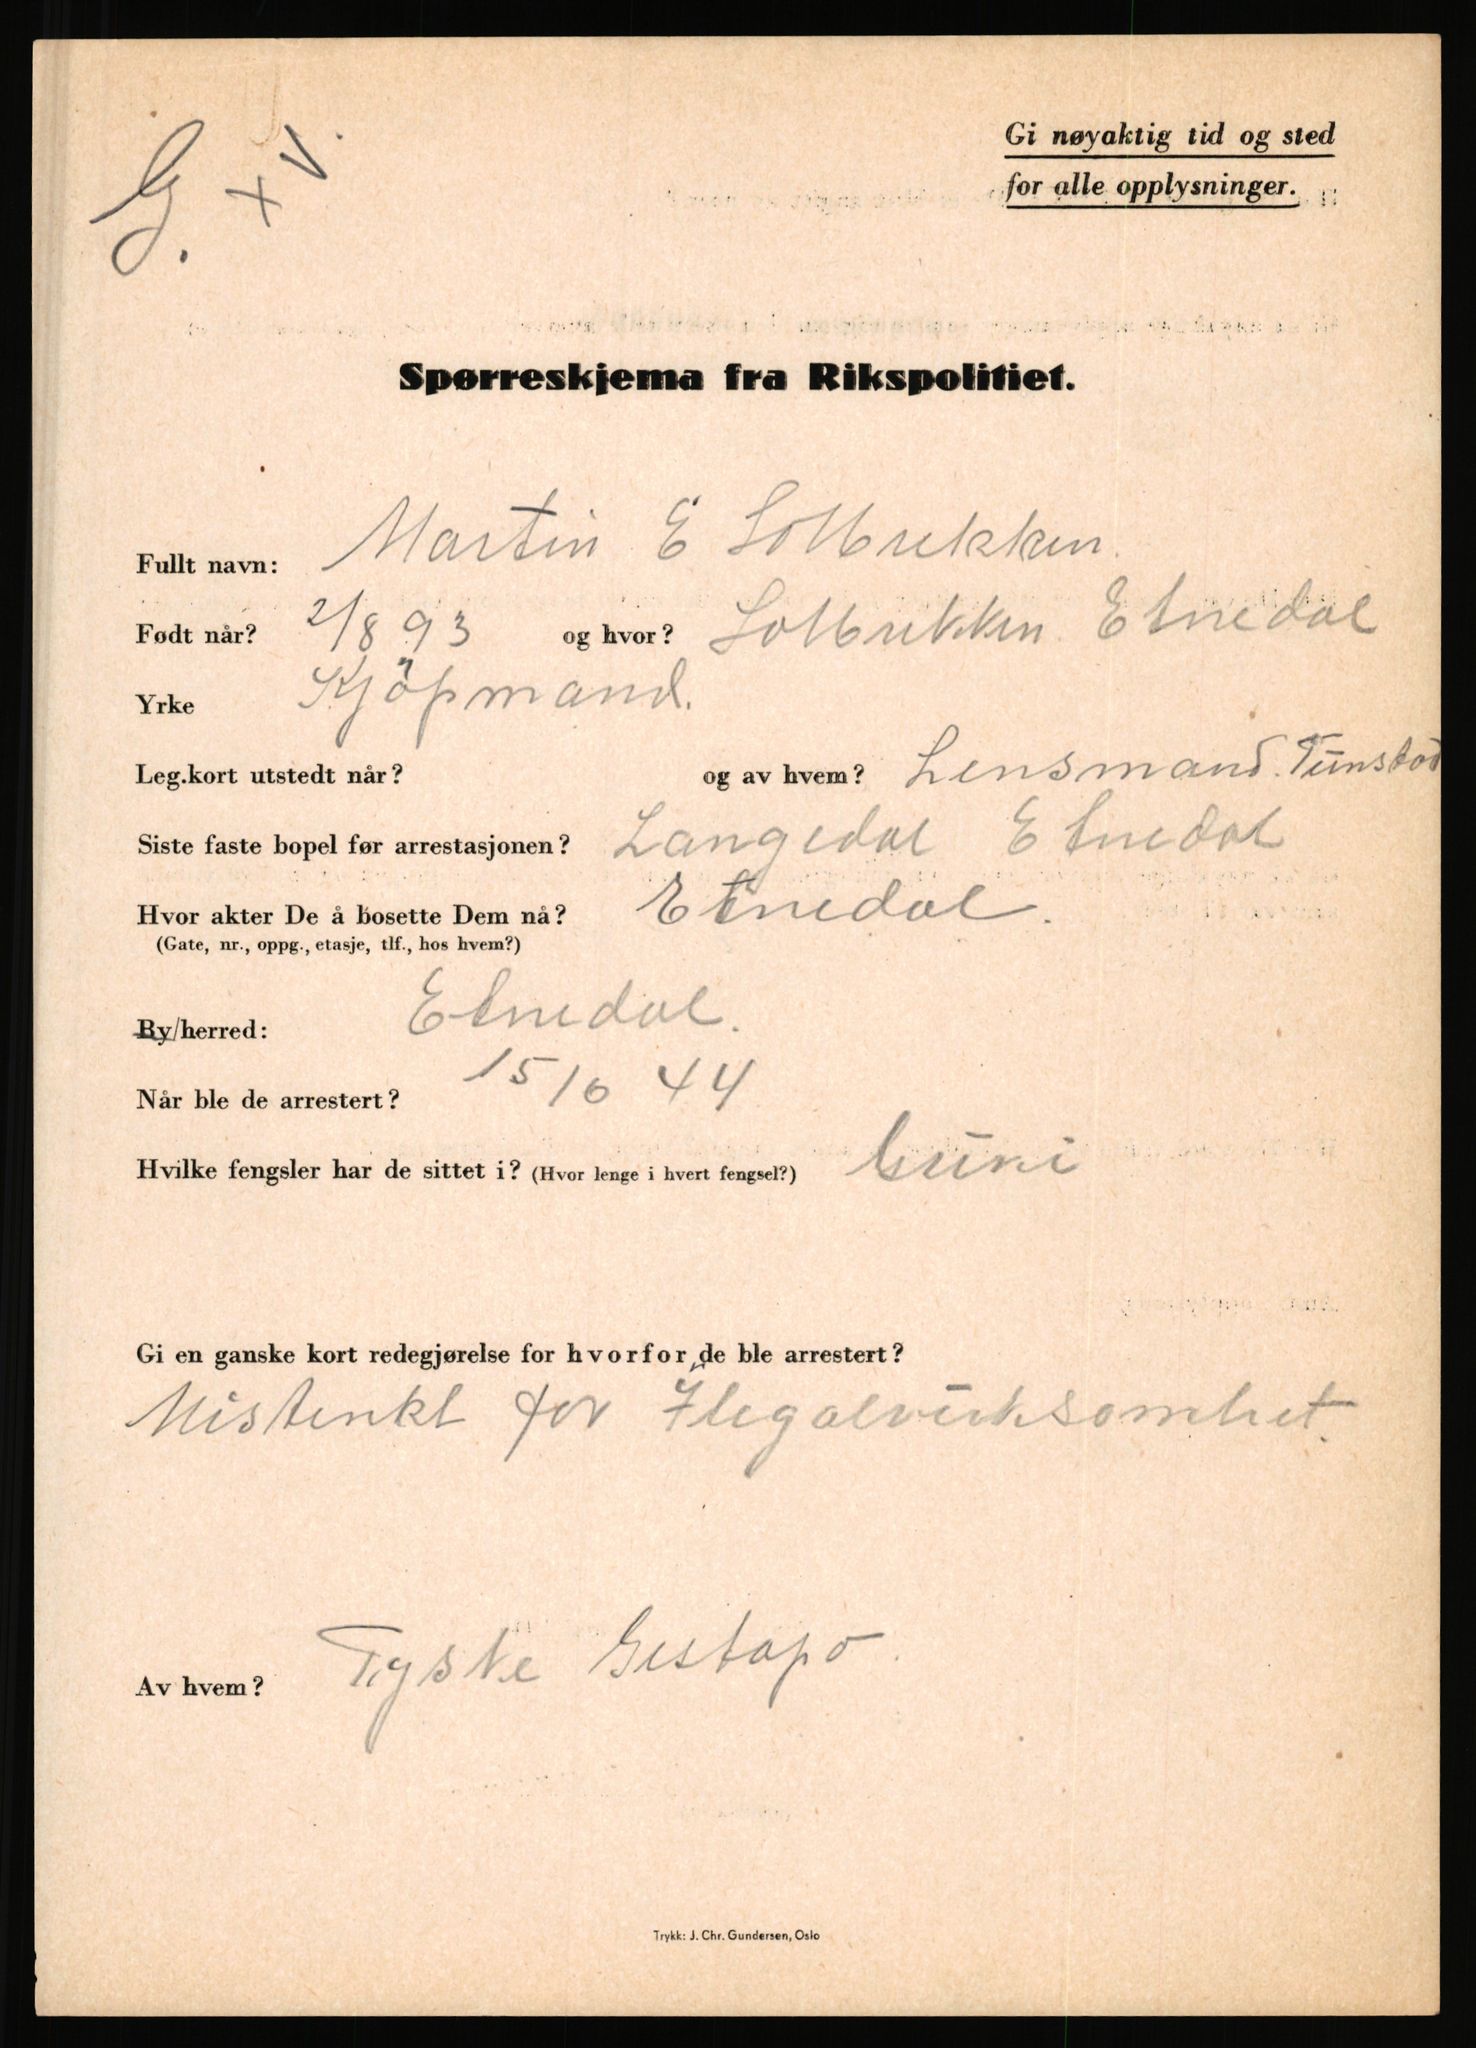 G. + V.
Gi nøyaktig tid og sted
for alle opplysninger.
Spørreskjema fra Rikspolitiet.
Fullt navn: Martin E Solbrekken.
Født når? 2/8 93 og hvor? Solbrekken Etnedal
Yrke Kjöpmand.
Leg.kort utstedt når? og av hvem? Lensmand. Tunstad
Siste faste bopel før arrestasjonen? Langedal Etnedal
Hvor akter De å bosette Dem nå? Etnedal.
(Gate, nr., oppg., etasje, tlf., hos hvem?)
By/herred: Etnedal.
Når ble de arrestert? 15/6 44
Hvilke fengsler har de sittet i? (Hvor lenge i hvert fengsel?)
Gi en ganske kort redegjørelse for hvorfor de ble arrestert?
Mistenkt for Ilegalvirksomhet.
Av hvem? Tyske Gestapo.
Trykk: J. Chr. Gundersen, Oslo